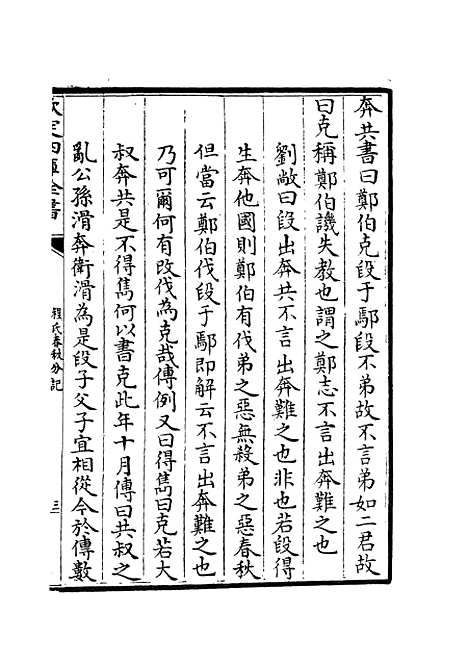 奔共書曰鄭伯克段于鄢段不弟故不言弟如二君故
曰克稱鄭伯譏失教也謂之鄭志不言出奔難之也
劉敞曰段出奔共不言出奔難之也非也若段得
生奔他國則鄭伯有伐弟之惡無殺弟之惡春秋
但當云鄭伯伐段于鄢即解云不言出奔難之也
乃可爾何有改伐為克哉傳例又曰得雋曰克若大
叔奔共是不得雋何以書克此年十月傳曰共叔之
亂公孫滑奔衛滑為是段子父子宜相從今於傳數
欽定四庫全書
程氏春秋分記
三